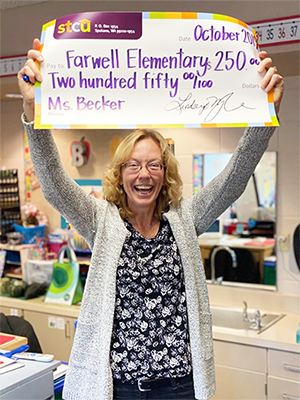 stcu
P. O. Box 1954
Spokane, WA 99210-1954
Date October
Pay to Farwell Elementary $ 250.00
Two hundred fifty 00/100 Dollars
Ms. Becker